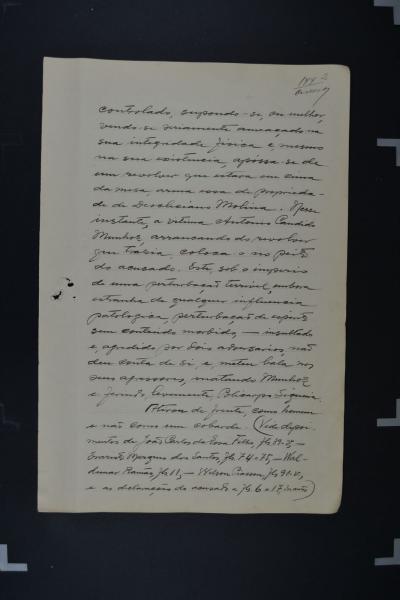 controlado, suppondo-se, ou melhor,
vendo-se seriamente ameaçado na
sua integridade fisica e, mesmo
na sua existencia, apóssa-se de
um revolver que estava em cima
da mesa, arma essa de proprieda-
de de Deocleciano Molina. Nesse
instante, a vitima Antonio Candido
Munhoz, arrancando do revolver
que trazia, coloca-o no peito
do acusado. Este, sob o imperio
de uma perturbação terrivel, embora
estranha de qualquer influencia
patologica, perturbação de espirito
sem conteúdo morbido, — insultado
e, agredido por dois adversarios, não
deu conta de si e, meteu bala nos
seus agressores, matando Munhoz
e ferindo, levemente, Policarpo Siqueira.
Atirou de frente, como homem
e não como um cobarde. (Vide depoi-
mentos de João Carlos de Filho, fls.
Marques dos Santos, fls. 74 e 75, — Wal-
demar fls. 11, — Wilson fls. 91 v.,
e as declarações do acusado a fls. 6 e 17